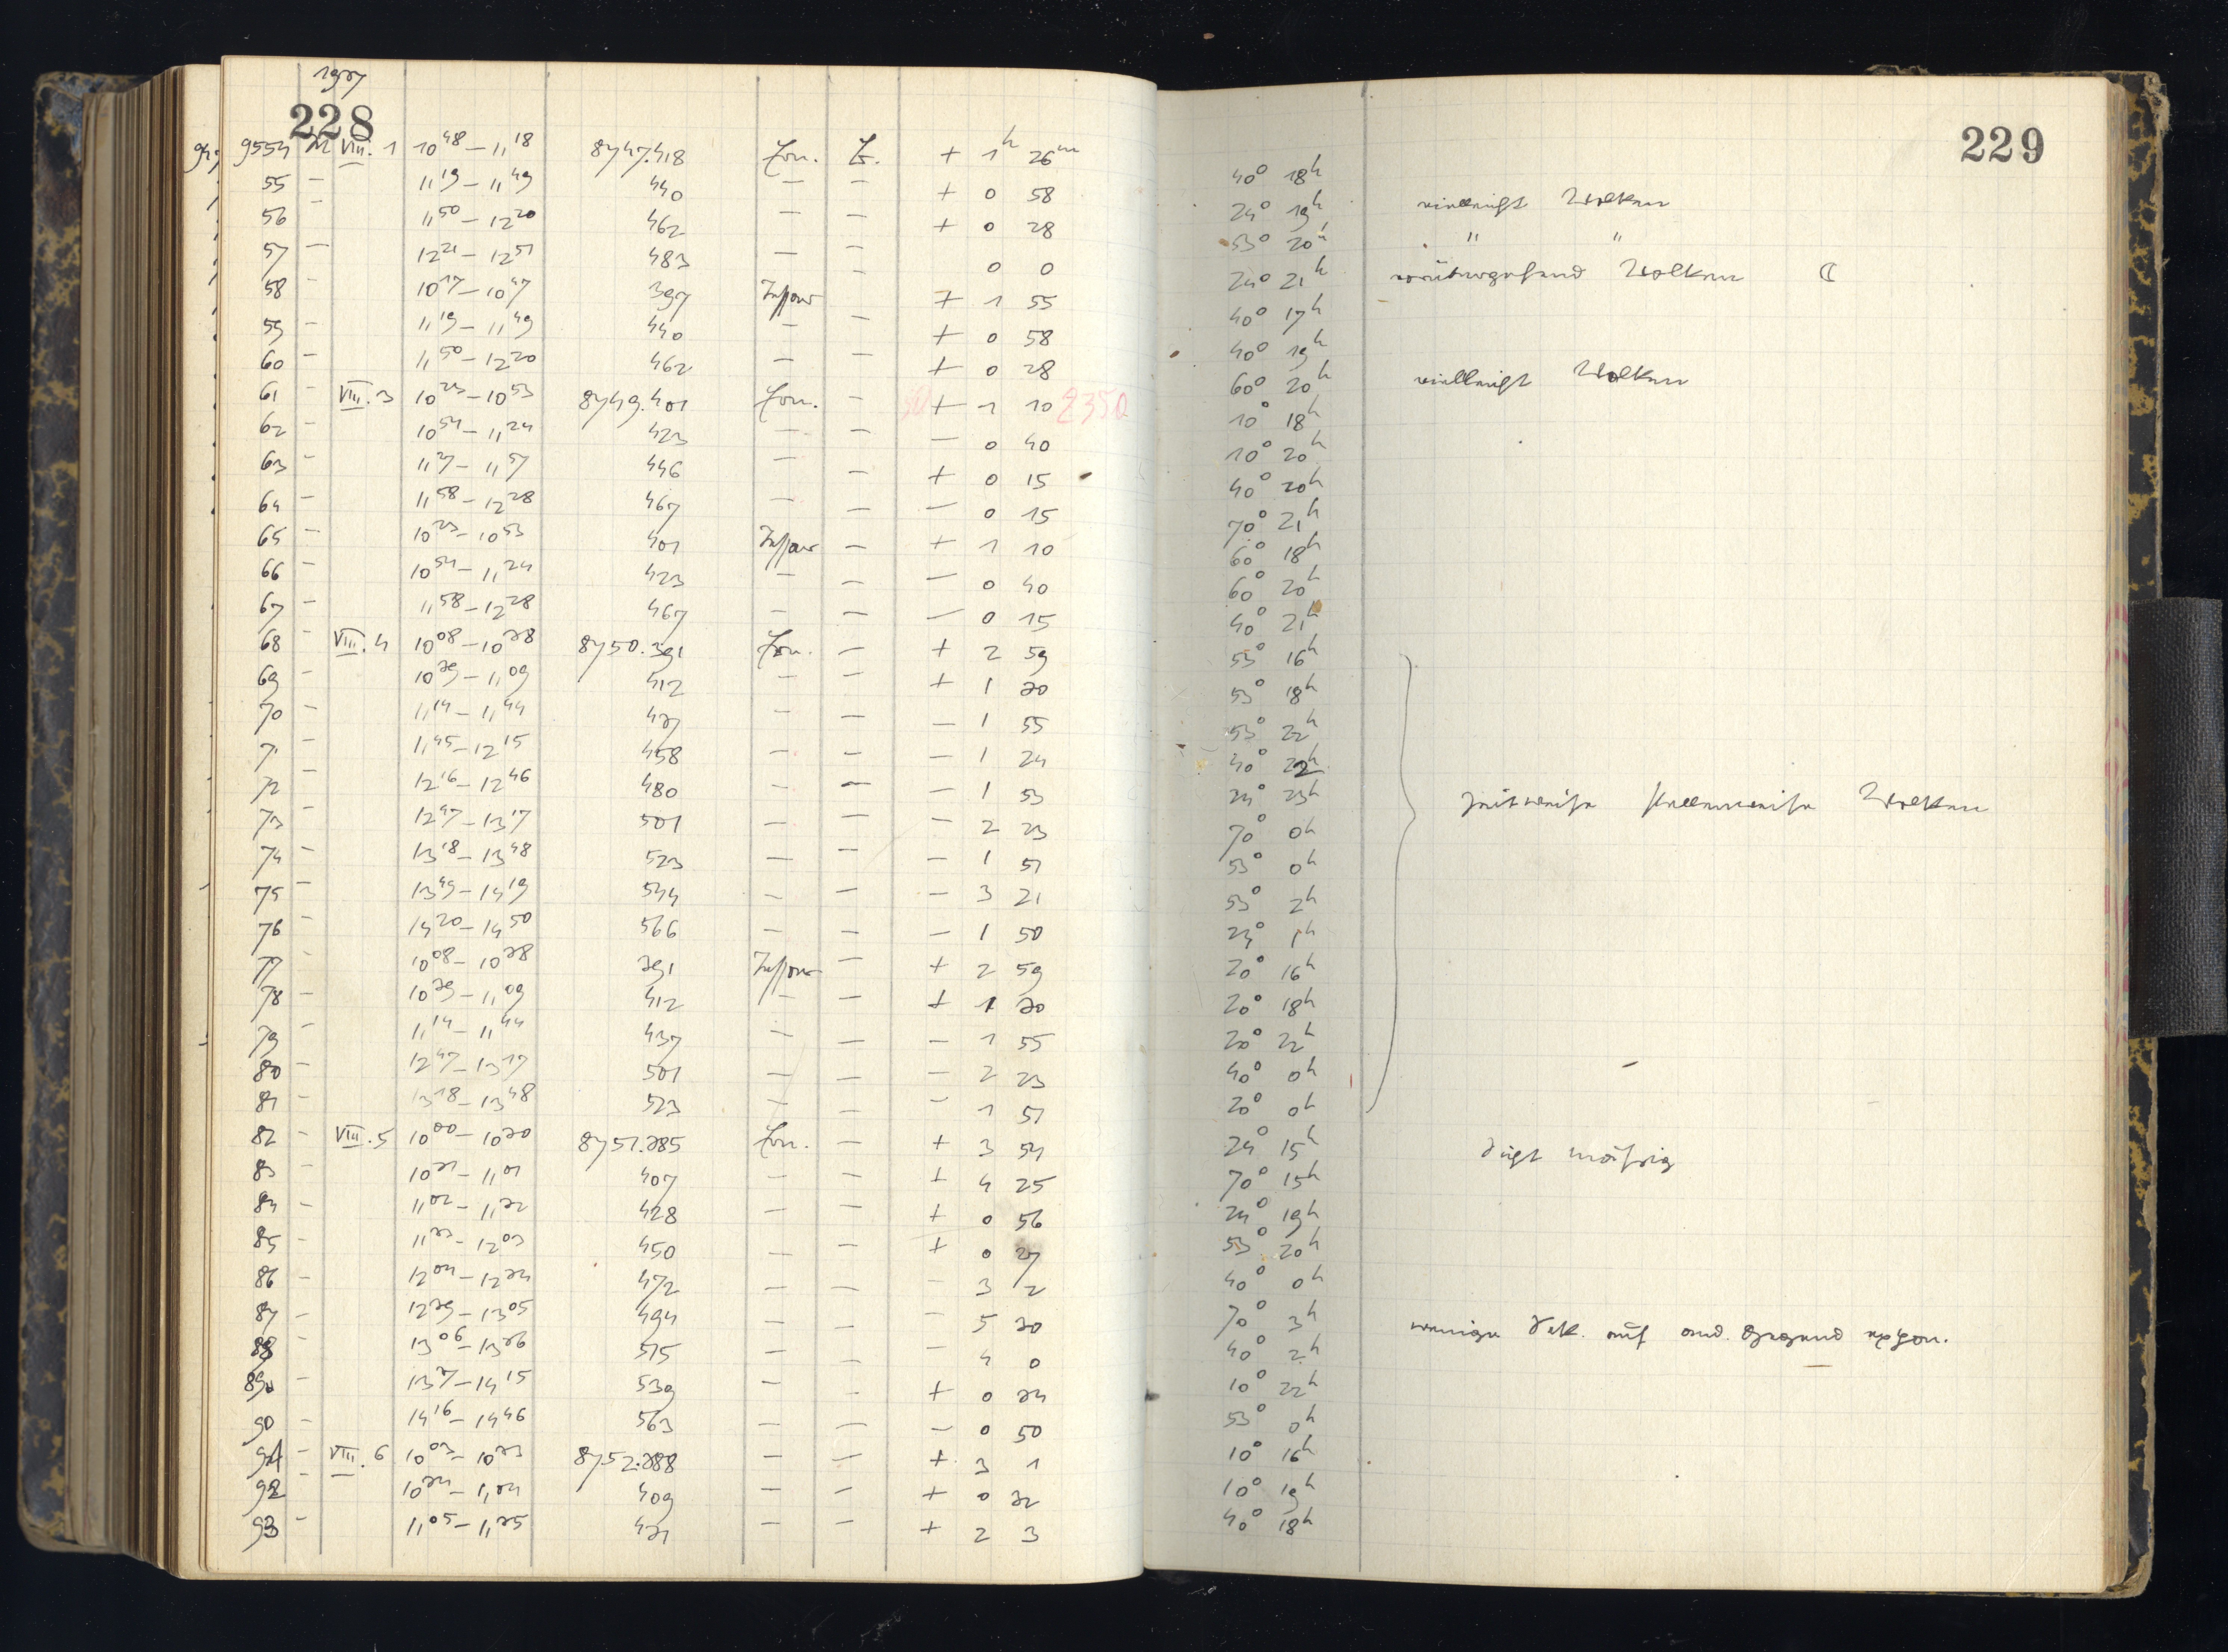 1927
228
9554 M VIII. 1 10 48 – 11 18 8747.418 Zon. Z. + 1h 26m
55 – 11 19 – 11 49 440 – – + 0 58
56 – 11 50 – 12 20 462 – – + 0 28
57 – 12 21 – 12 51 483 – – 0 0
58 – 10 17 – 10 47 397 Tessar – + 1 55
59 – 11 19 – 11 49 440 – – + 0 58
60 – 11 50 – 12 20 462 – – + 0 28
61 – VIII. 3 10 23 – 10 53 8749.401 Zon. – + 1 10 2350
62 – 10 54 – 11 24 423 – – – 0 40
63 – 11 27 – 11 57 446 – – + 0 15
64 – 11 58 – 12 28 467 – – – 0 15
65 – 10 23 – 10 53 401 Tessar – + 1 10
66 – 10 54 – 11 24 423 – – – 0 40
67 – 11 58 – 12 28 467 – – – 0 15
68 – VIII. 4 10 08 – 10 38 8750.391 Zon. – + 2 59
69 – 10 39 – 11 09 412 – – + 1 30
70 – 11 14 – 11 44 437 – – – 1 55
71 – 11 45 – 12 15 458 – – – 1 24
72 – 12 16 – 12 46 480 – – – 1 53
73 – 12 47 – 13 17 501 – – – 2 23
74 – 13 18 – 13 48 523 – – – 1 51
75 – 13 49 – 14 19 544 – – – 3 21
76 – 14 20 – 14 50 566 – – – 1 50
77 – 10 08 – 10 38 391 Tessar – + 2 59
78 – 10 39 – 11 09 412 – – + 1 30
79 – 11 14 – 11 44 437 – – – 1 55
80 – 12 47 – 13 17 501 – – – 2 23
81 – 13 18 – 13 48 523 – – – 1 51
82 – VIII. 5 10 00 – 10 30 8751.385 Zon. – + 3 54
83 – 10 31 – 11 01 407 – – + 4 25
84 – 11 02 – 11 32 428 – – + 0 56
85 – 11 33 – 12 03 450 – – + 0 27
86 – 12 04 – 12 34 472 – – – 3 2
87 – 12 35 – 13 05 494 – – – 5 30
88 – 13 06 – 13 36 515 – – – 4 0
89 – 13 37 – 14 15 539 – – + 0 34
90 – 14 16 – 14 46 563 – – – 0 50
91 – VIII. 6 10 03 – 10 33 8752.388 – – + 3 1
92 – 10 34 – 11 04 409 – – + 0 32
93 – 11 05 – 11 35 431 – – + 2 3
229
40° 18h
24° 19h vielleicht Wolken
53° 20h " "
24° 21h vorübergehend Wolken ☾
40° 17h
40° 19h
60° 20h vielleicht Wolken
10° 18h
10° 20h
40° 20h
70° 21h
60° 18h
60° 20h
40° 21h
53° 16h
53° 18h
53° 22h
40° 22h
24° 23h zeitweise stellenweise Wolken
70° 0h
53° 0h
53° 2h
24° 1h
20° 16h
20° 18h
20° 22h
40° 0h
20° 0h
24° 15h Sicht mässig
70° 15h
24° 19h
53° 20h
40° 0h
70° 3h wenige Sek. auf and. Gegend expon.
40° 2h
10° 22h
53° 0h
10° 16h
10° 19h
40° 18h